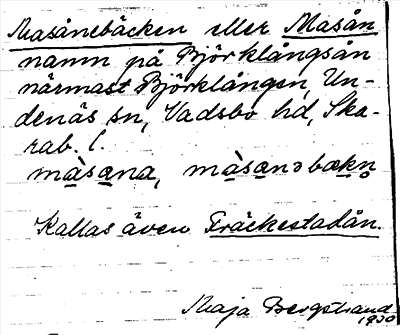 Masånebäcken eller Masån
namn på Björklångsån
närmast Björklången, Un-
denäs sn, Vadsbo hd, Ska-
rab. l.
màsæna, màsænəbækn̥
Kallas även Träckestadån.
Maja Bergstrand
1930